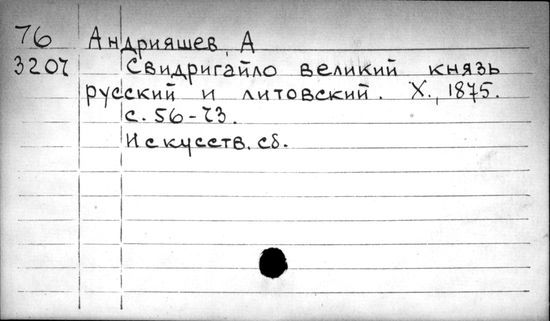 76 Андрияшев, А
3207 Свидригайло великий князь
русский и литовский. Х., 1875.
с. 56-73.
Искусств. сб.